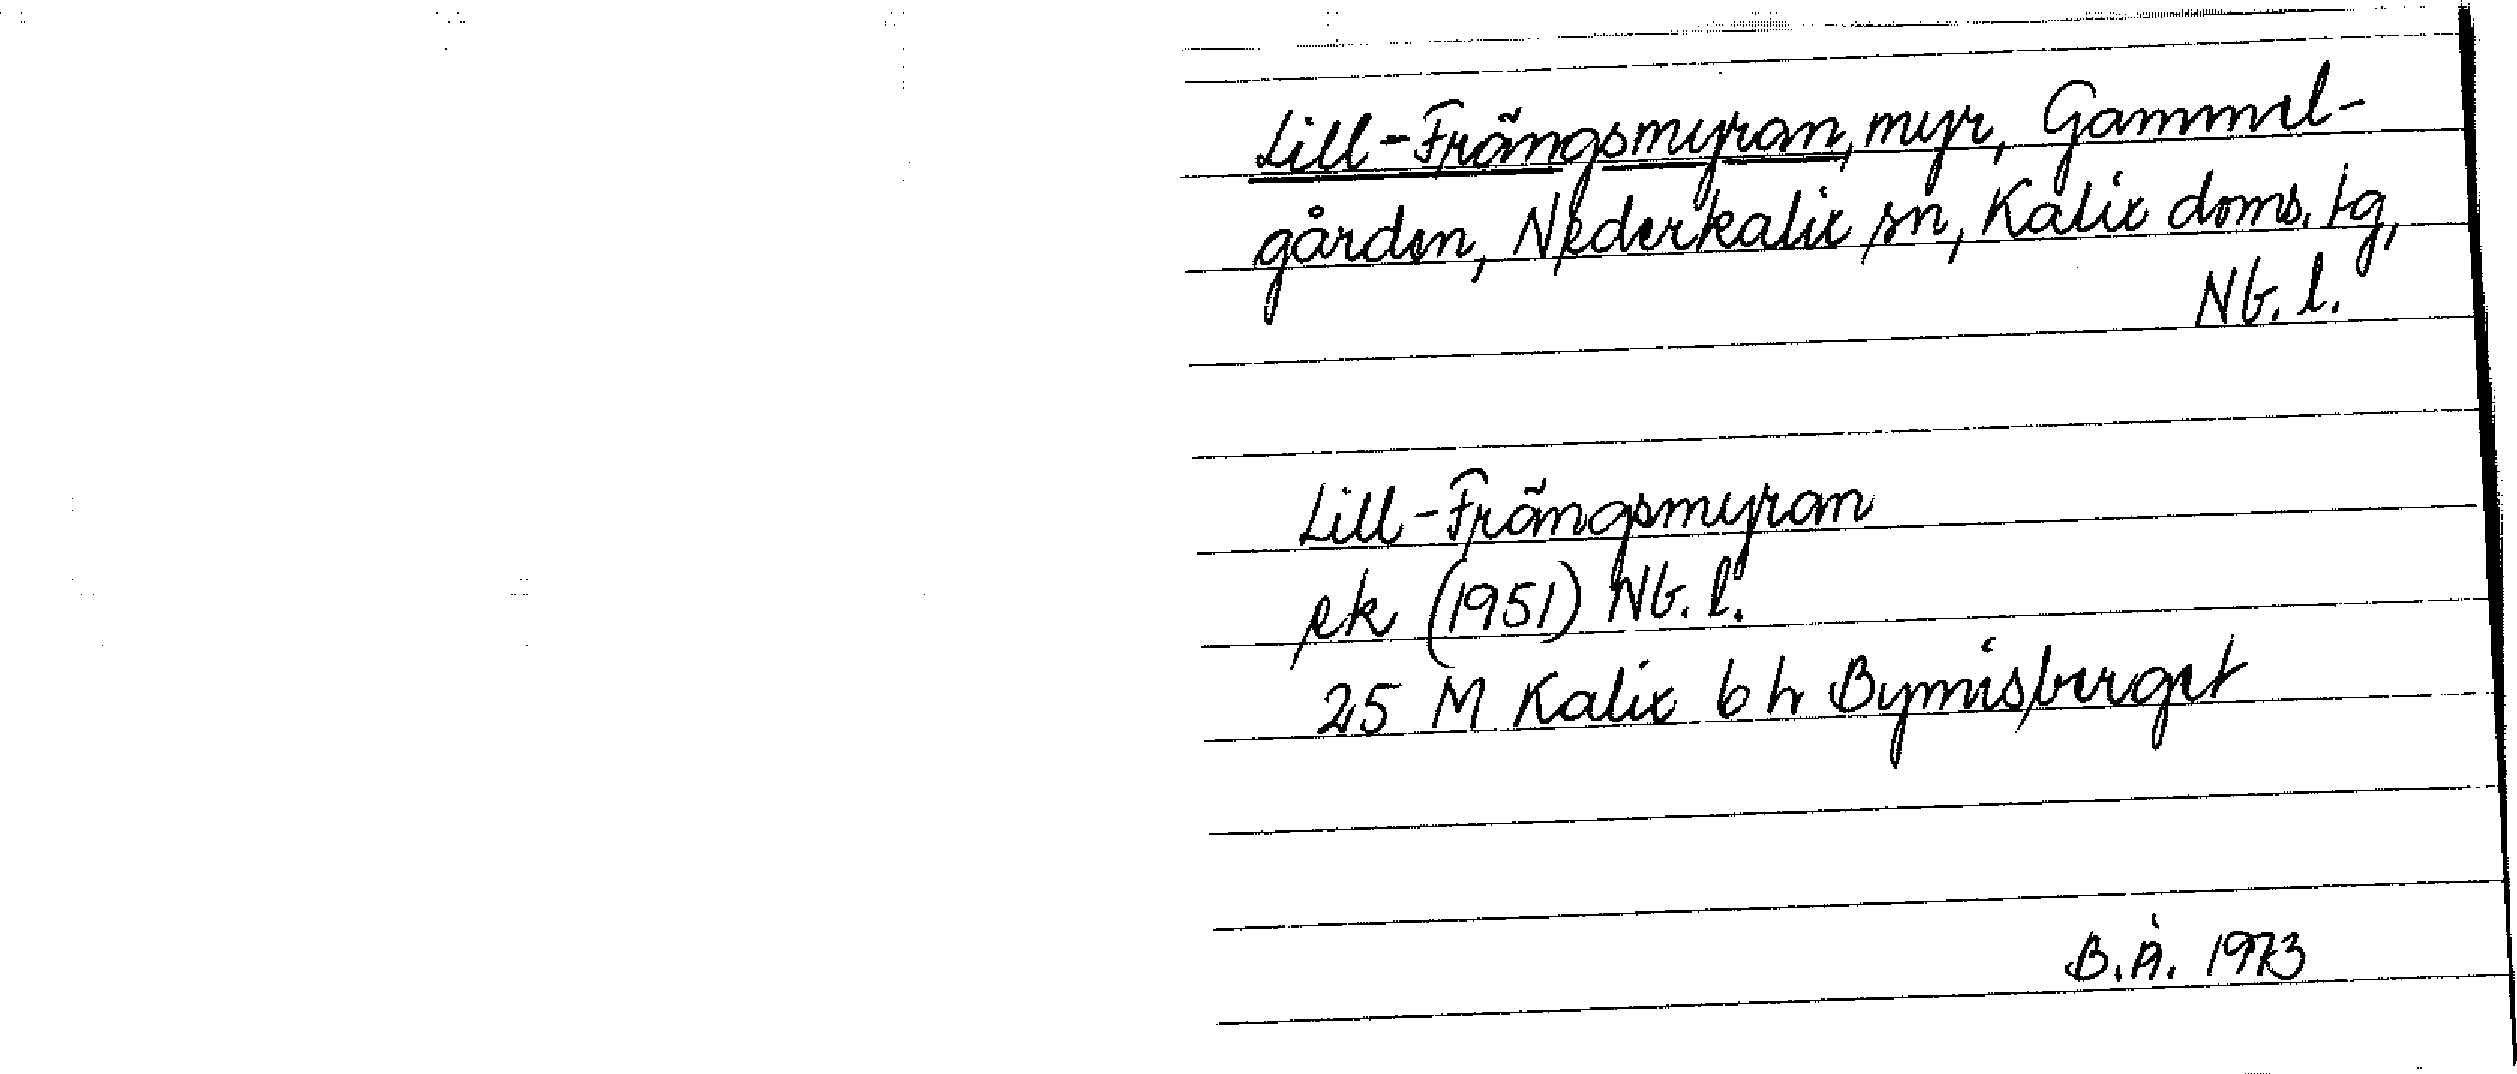 Lill-Frängsmyran, myr, Gammel-
gården, Nederkalix sn, Kalix doms. tg,
Nb. l.
Lill-Frängsmyran
ek (1951) Nb. l.
25 M Kalix 6 h Bymisberget
B.Å. 1973